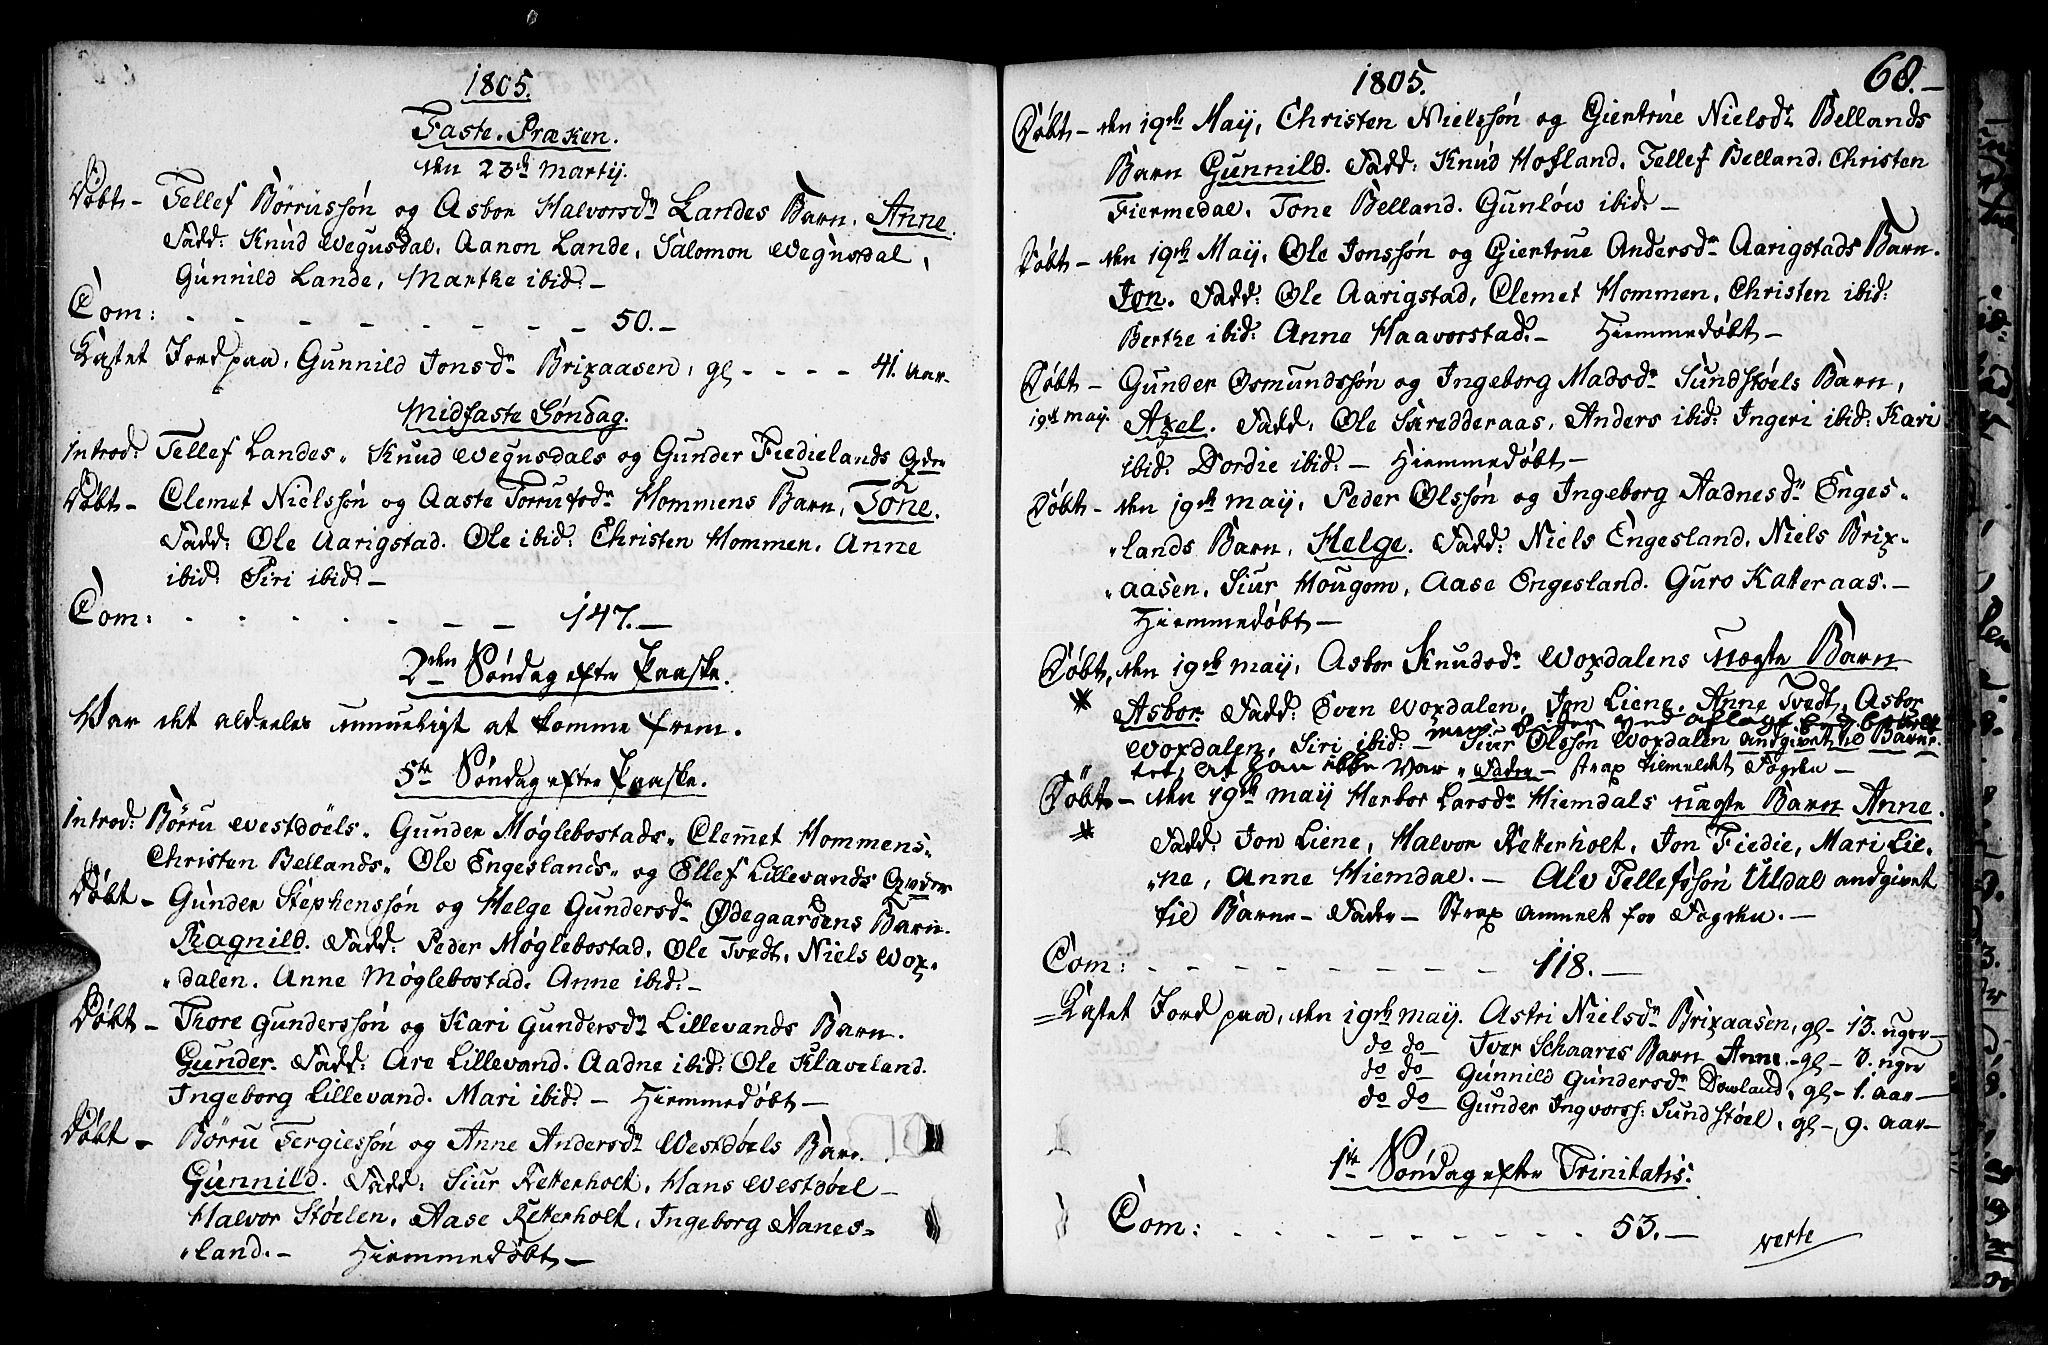 1805.
Faste-Præken.
den 23de Martij.
Døbt - Tellef Børrüssøn og Asbor Halvorsdr Landes Barn. Anne.
Fadd: Knud Wegusdal, Aanon Lande, Salomon Wegusdal,
Gunnild Lande, Marthe ibid: -
Com: - - - - - - - 50. -
Kastet Jord paa, Gunnild Jonsdr Brixaasen, gl - - - - 41. Aar -
Midfaste Søndag.
Introd: Tellef Landes, Knud Wegusdals og Gunder Fiedielands Qvder
Døbt - Clemet Nielssøn og Aaste Torrufsdr Hommens Barn, Tone.
Fadd: Ole Aarigstad. Ole ibid: Christen Hommen. Anne
ibid: Siri ibid: -
Com: - - - - - - - 147. -
2den Søndag efter Paaske.
Var det aldeeles umueligt at komme frem.
5te Søndag efter Paaske.
Introd: Børru Westdøels, Gunder Møglebostads, Clemet Hommens,
Christen Bellands, Ole Engeslands, og Ellef Lillevands Qvder
Døbt - Gunder Stephenssøn og Helge Gundersdr Ødegaardens Barn.
Ragnild. Fadd: Peder Møglebostad, Ole Tvedt, Niels Wox-
dalen. Anne Møglebostad. Anne ibid: -
Døbt - Thore Gunderssøn og Kari Gundersdr Lillevands Barn.
Gunder. Fadd: Are Lillevand. Aadne ibid: Ole Klaveland.
Ingeborg Lillevand. Mari ibid: - Hiemmedøbt -
Døbt - Børru Tergiessøn og Anne Andersdr Westdøels Barn.
Gunnild. Fadd: Siur Retterholt, Hans Westdøel -
Halvor Støelen, Aase Retterholt, Ingeborg Aanes-
land. - Hiemmedøbt -
1805.
68. -
Døbt - den 19de Maij, Christen Nielssøn og Giertrue Nielsdr Bellands
Barn Gunnild. Fadd: Knud Hofland, Tellef Belland. Christen
Fiermedal, Tone Belland. Gunløw ibid: -
Døbt - den 19de Maij, Ole Jonssøn og Giertrue Andersdr Aarigstads Barn.
Jon. Fadd: Ole Aarigstad, Clemet Hommen, Christen ibid:
Berthe ibid: Anne Haavorstad. - Hiemmedøbt -
Døbt - Gunder Osmundssøn og Ingeborg Madsdr Sundstøels Barn,
19de maij. Axel. Fadd: Ole Saredderaas, Anders ibid: Ingeri ibid: Kari
ibid: Dordie ibid: - Hiemmedøbt -
Døbt - den 19de maij, Peder Olssøn og Ingeborg Aadnesdr Enges-
lands Barn, Helge. Fadd: Niels Engesland. Niels Brix-
aasen, Siur Hougom, Aase Engesland. Guro Katteraas. -
Hiemmedøbt -
Døbt, den 19de maij, Asbor Knudsdr Woxdalens uægte Barn
Asbor. Fadd: Even Woxdalen, Jon Liene, Anne Tvedt, Asbor
Woxdalen, Siri ibid: - Siur Olssøn Woxdalen andgivet til Barne-
men siden ved aflagt Eed befriet
tet, at han ikke var Fader - strax tilmeldet Fogden -
Døbt - den 19de maij Herbor Larsdr Hiemdals uægte Barn Anne.
Fadd: Jon Liene, Halvor Retterholt, Jon Fiedie, Mari Lie-
ne, Anne Hiemdal. - Alv Tellefssøn Uldal andgivet
til Barne-Fader - Strax anmelt for Fogden. -
Com: - - - - - - - - - 118. -
Kastet Jord paa, den 19de maij. Astri Nielsdr Brixaasen, gl - 13. uger -
do do - Iver Schaares Barn Anne - gl - 8. uger
do do - Gunnild Gundersdr Dowland, gl - 1. aar -
do do - Gunder Ingvorss: Sundstøel, gl - 9. aar -
1ste Søndag efter Trinitatis.
Com: - - - - - - - - - 53. -
verte